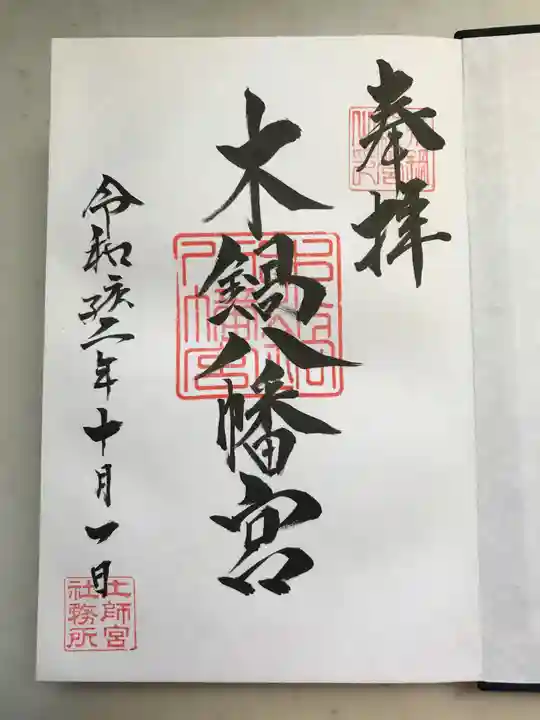 奉拝
木鍋八幡宮
令和庚子二年十月一日
土師宮
社務所